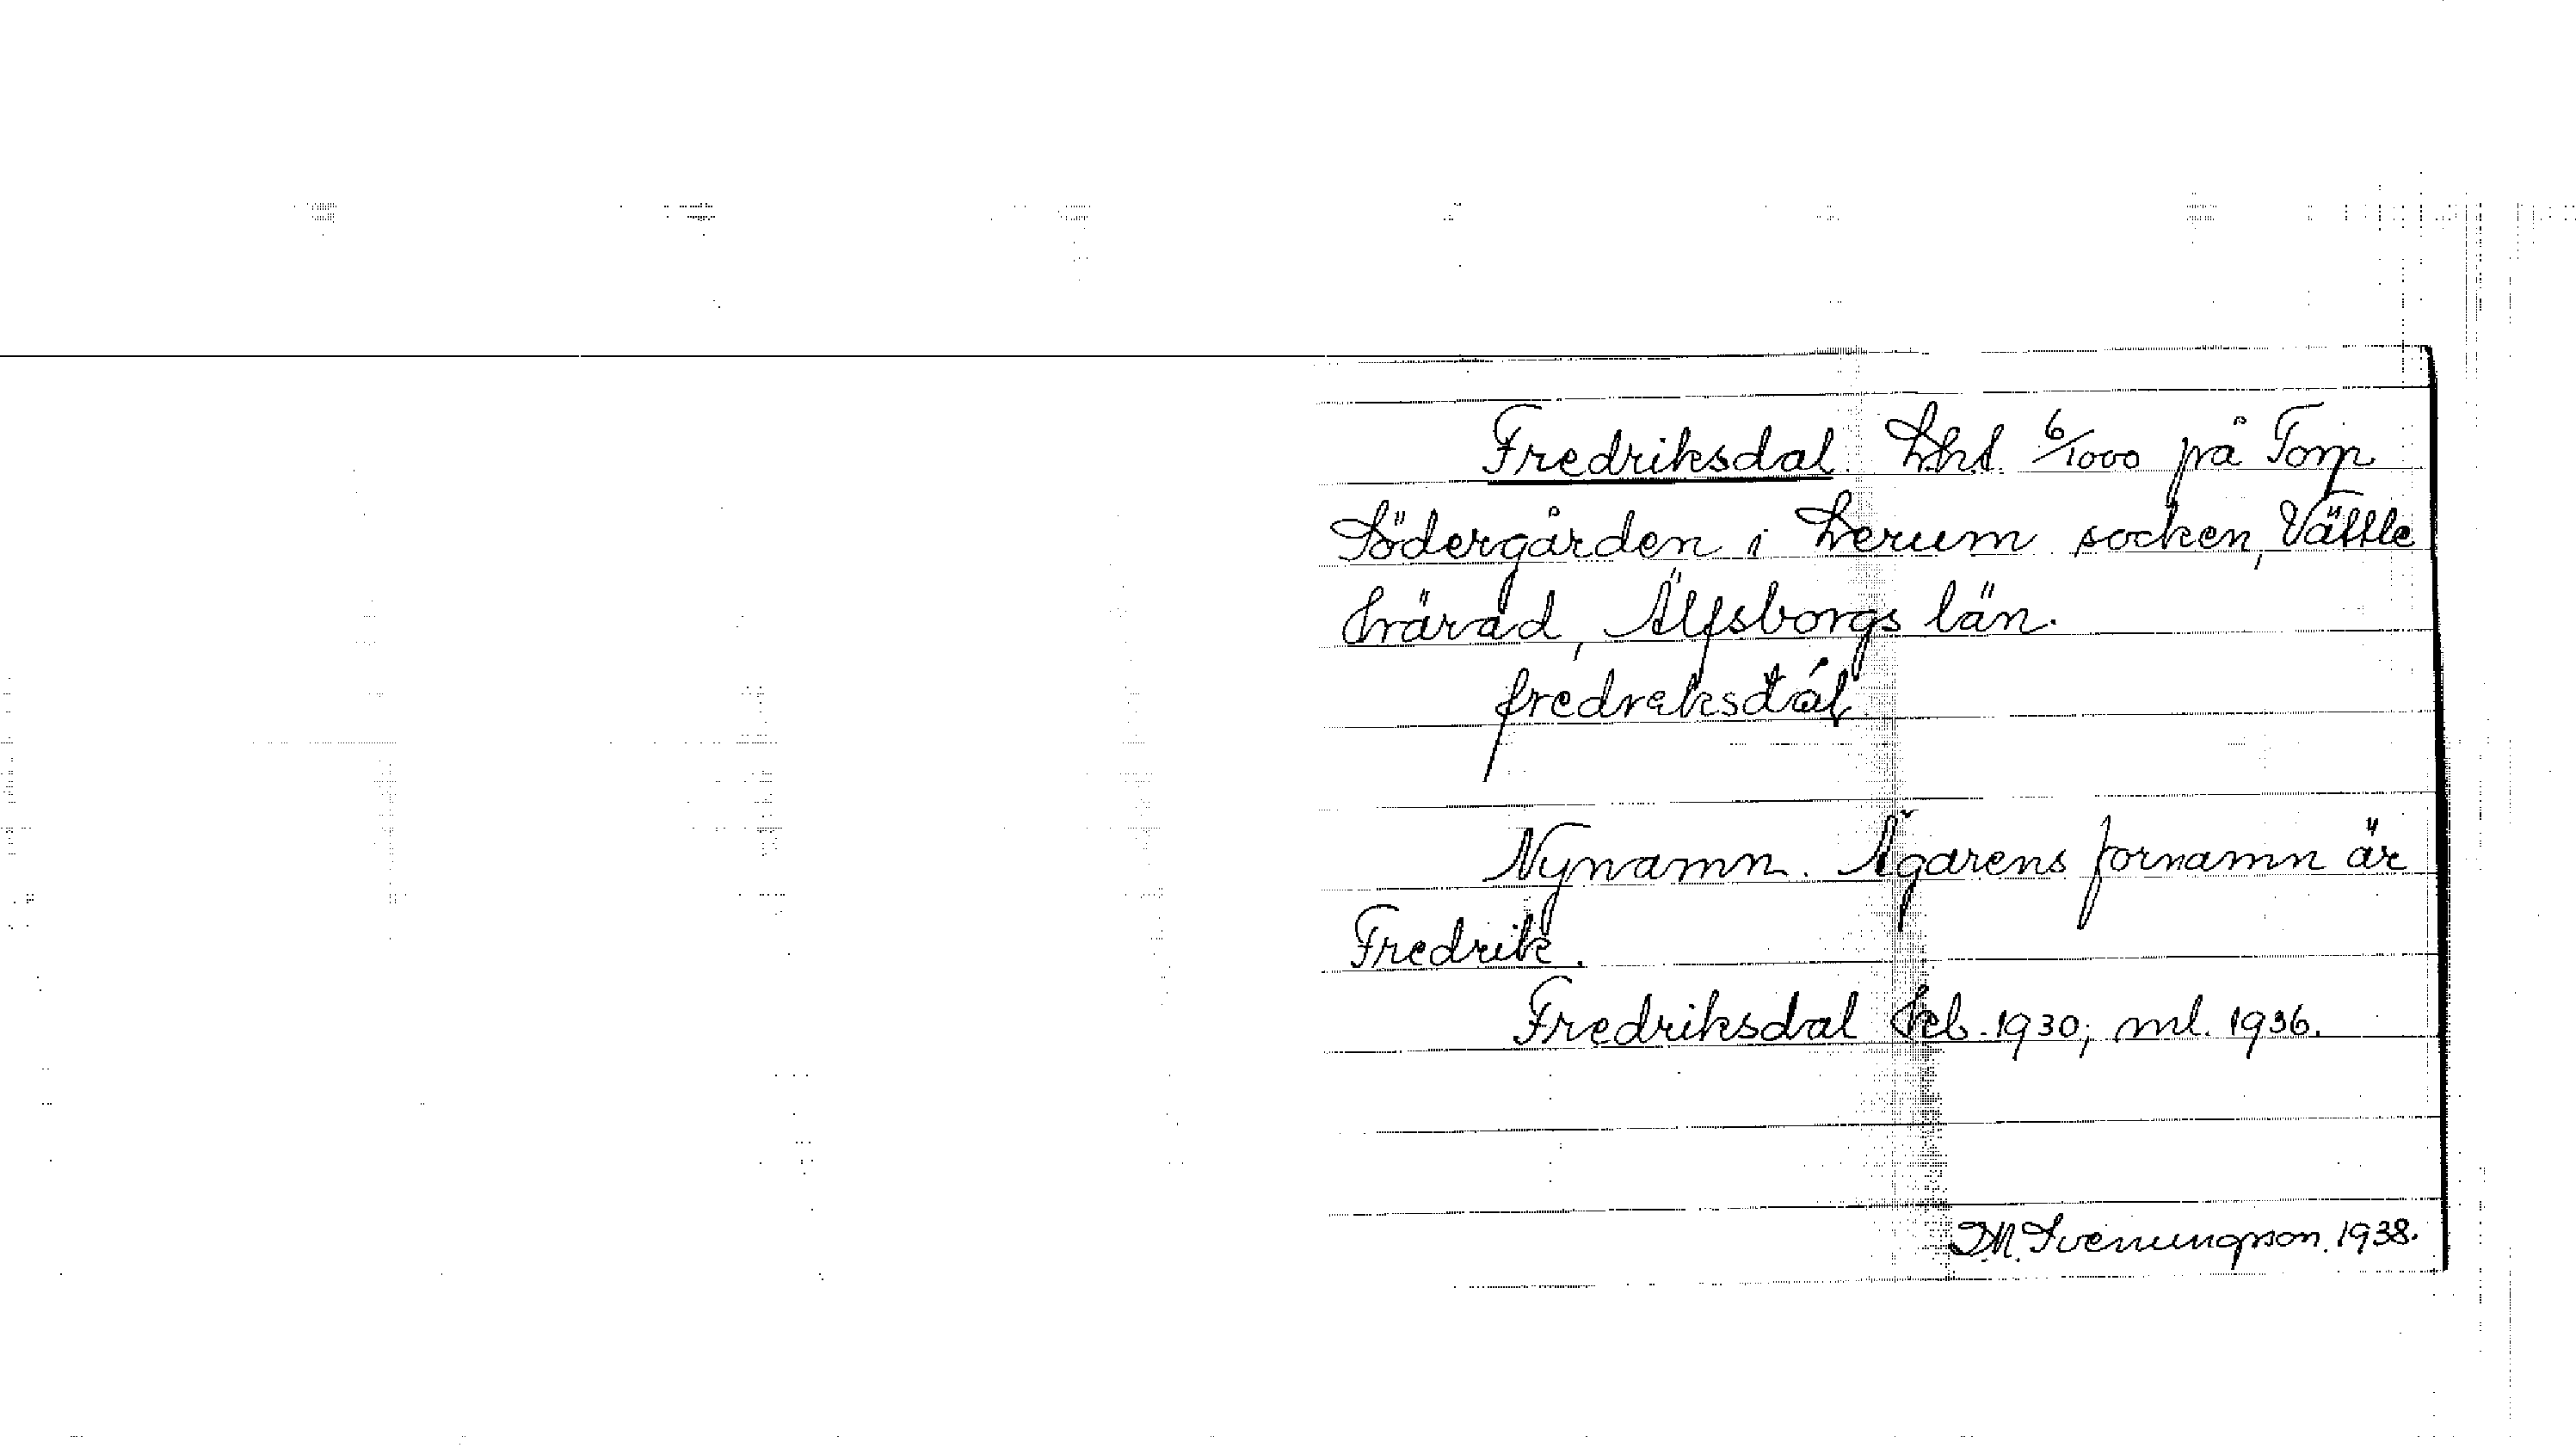 Fredriksdal Lht. 6/1000 på Torp
Södergården i Lerum socken, Vättle
härad, Älfsborgs län.
fredreksdál
Nynamn. Ägarens förnamn är
Fredrik.
Fredriksdal Jeb. 1930; ml. 1936.
D.M. Svenungsson. 1938.